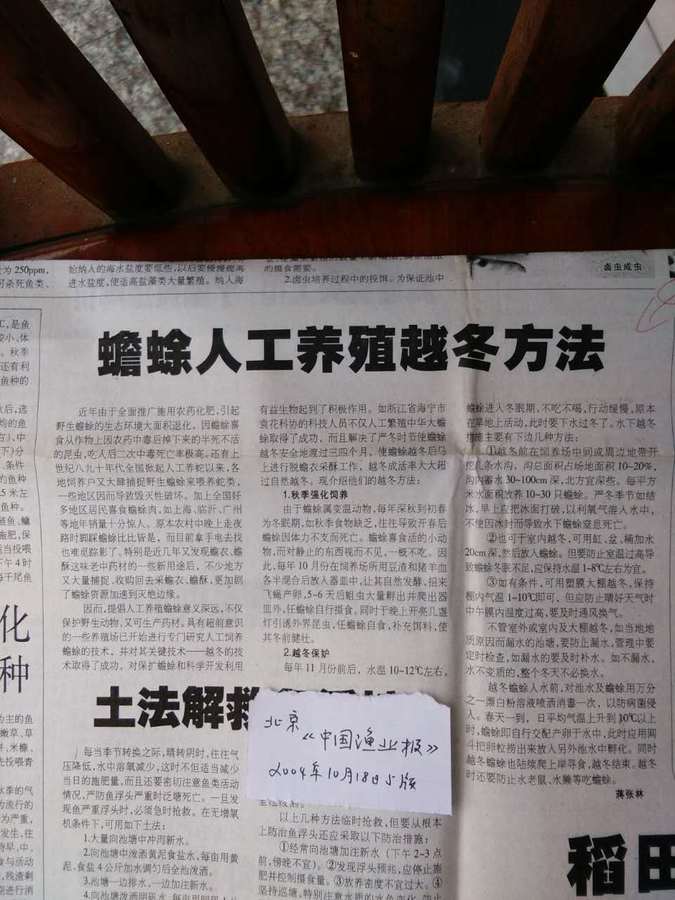 为 250ppm,
可杀死鱼类、
始纳入的海水盐度要低些,以后要慢慢提高
进水盐度,使适高盐藻类大量繁殖。纳入海
的摄食需要。
2.卤虫培养过程中的投饵。为保证池中
卤虫成虫
蟾蜍人工养殖越冬方法
近年由于全面推广施用农药化肥,引起
野生蟾蜍的生态环境大面积退化。因蟾蜍喜
食从作物上因农药中毒后掉下来的半死不活
的昆虫,吃入后二次中毒死亡率极高,还有上
世纪八九十年代全国掀起人工养蛇以来,各
地饲养户又大肆捕捉野生蟾蜍来喂养蛇类,
一些地区因而导致毁灭性破坏。加上全国好
多地区居民喜食蟾蜍肉,如上海、临沂、广州
等地年销量十分惊人。原本农村中晚上走夜
路时脚踩蟾蜍比比皆是,而目前拿手电去找
也难觅踪影了。特别是近几年又发现蟾衣、蟾
酥这味老中药材的一些新用途后,不少地方
又大量捕捉,收购回去采蟾衣、蟾酥,更加剧
了蟾蜍资源加速到灭绝边缘。
因而,提倡人工养殖蟾蜍意义深远,不仅
保护野生动物,又可生产药材。具有超前意识
的一些养殖场已开始进行专门研究人工饲养
蟾蜍的技术,并对其关键技术——越冬的技
术取得了成功,对保护蟾蜍和科学开发利用
有益生物起到了积极作用。如浙江省海宁市
袁花科协的科技人员不仅人工繁殖中华大蟾
蜍取得了成功,而且解决了严冬时节使蟾蜍
越冬安全地渡过三四个月,使蟾蜍越冬后马
上进行脱蟾衣采酥工作,越冬成活率大大超
过自然越冬。现介绍他们的越冬方法:
1.秋季强化饲养
由于蟾蜍属变温动物,每年深秋到初春
为冬眠期,如秋季食物缺乏,往往导致开春后
蟾蜍因体力不支而死亡。蟾蜍喜食活的小动
物,而对静止的东西视而不见,一概不吃。因
此,每年10月份在饲养场所用豆渣和猪羊血
各半混合后放入器皿中,让其自然发酵,招来
飞蝇产卵,5-6天后蛆虫大量孵出并爬出器
皿外,任蟾蜍自行摄食,同时于晚上开亮几盏
灯引诱外界昆虫,任蟾蜍自食,补充饵料,使
其冬前健壮。
2.越冬保护
每年11月份前后,水温10-12℃左右,
蟾蜍进入冬眠期,不吃不喝,行动缓慢,原本
在草地上活动,此时要下水过冬了。水下越冬
措施主要有下边几种方法:
①越冬前在饲养场中间或周边地带开
挖几条水沟,沟总面积占场地面积10-20%,
沟内蓄水30-100cm深,北方宜深些。每平方
米水面积放养10-30只蟾蜍。严冬季节如结
冰,早上应把冰面打破,以利氧气溶入水中,
不使因冰封而导致水下蟾蜍窒息死亡。
②也可于室内越冬,可用缸、盆、桶加水
20cm深,然后放入蟾蜍。但要防止室温过高导
致蟾蜍冬眠不足,应保持水温1-8℃左右为宜。
③如有条件,可用塑膜大棚越冬,保持
棚内气温1-10℃即可,但应防止晴好天气时
中午膜内温度过高,要及时通风换气。
不管室外或室内及大棚越冬,如当地地
质原因而漏水的池塘,要防止漏水,管理中要
定时检查,如漏水的要及时补水。如不漏水,
水不变质的,整个冬天不必换水。
越冬蟾蜍入水前,对池水及蟾蜍用万分
之一漂白粉溶液喷洒消毒一次,以防病菌侵
入。春天一到,日平均气温上升到10℃以上
时,蟾蜍即自行交配产卵于水中,此时应用网
斗把卵粒捞出来放入另外池水中孵化。同时
越冬蟾蜍也陆续爬上岸寻食,越冬结束。越冬
时还要防止水老鼠、水獭等吃蟾蜍。
蒋张林
土法解救
北京
《中国渔业报》
2004年10月18日5版
每当季节转换之际,晴转阴时,往往气
压降低,水中溶氧减少,这时不但适当减少
当日的施肥量,而且还要密切注意鱼类活动
情况,严防鱼浮头严重时泛塘死亡。一旦发
现鱼严重浮头时,必须急时抢救。在无增氧
机条件下,可用如下土法:
1.大量向池塘中冲河新水。
2.向池塘中泼洒黄泥食盐水,每亩用黄
泥、食盐4公斤加水调匀后全池泼洒。
3.池塘一边排水,一边加注新水。
以上几种方法临时抢救,但要从根本
上防治鱼浮头还应采取以下防治措施:
①经常向池塘加注新水(下午2-3点
前,傍晚不宜)。②发现浮头预兆,应停止施
肥并控制摄食量。③放养密度不宜过大。④
稻田
化
种